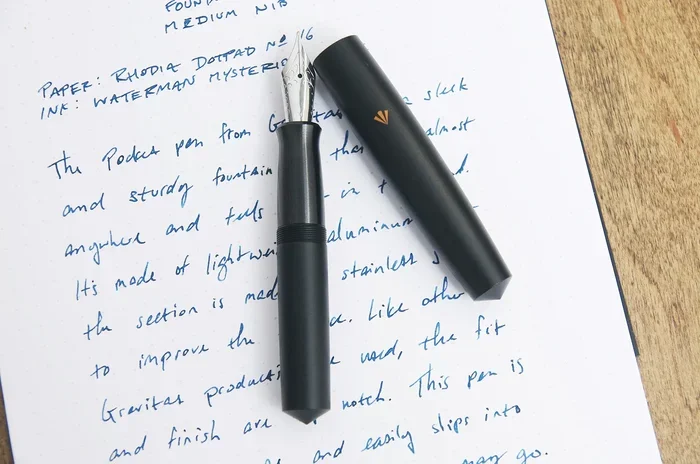 FOUN
MEDIUM NIB
PAPER: RHODIA DOTPAD No 16
INK: WATERMAN MYSTERIO
The Pocket pen from Gravitas sleek
and sturdy fountain that almost
anywhere and feels in
Its made of lightwei aluminum
the section is mad stainless s
to improve the Like other
Gravitas product used, the fit
and finish are notch. This pen is
and easily slips into
may go.